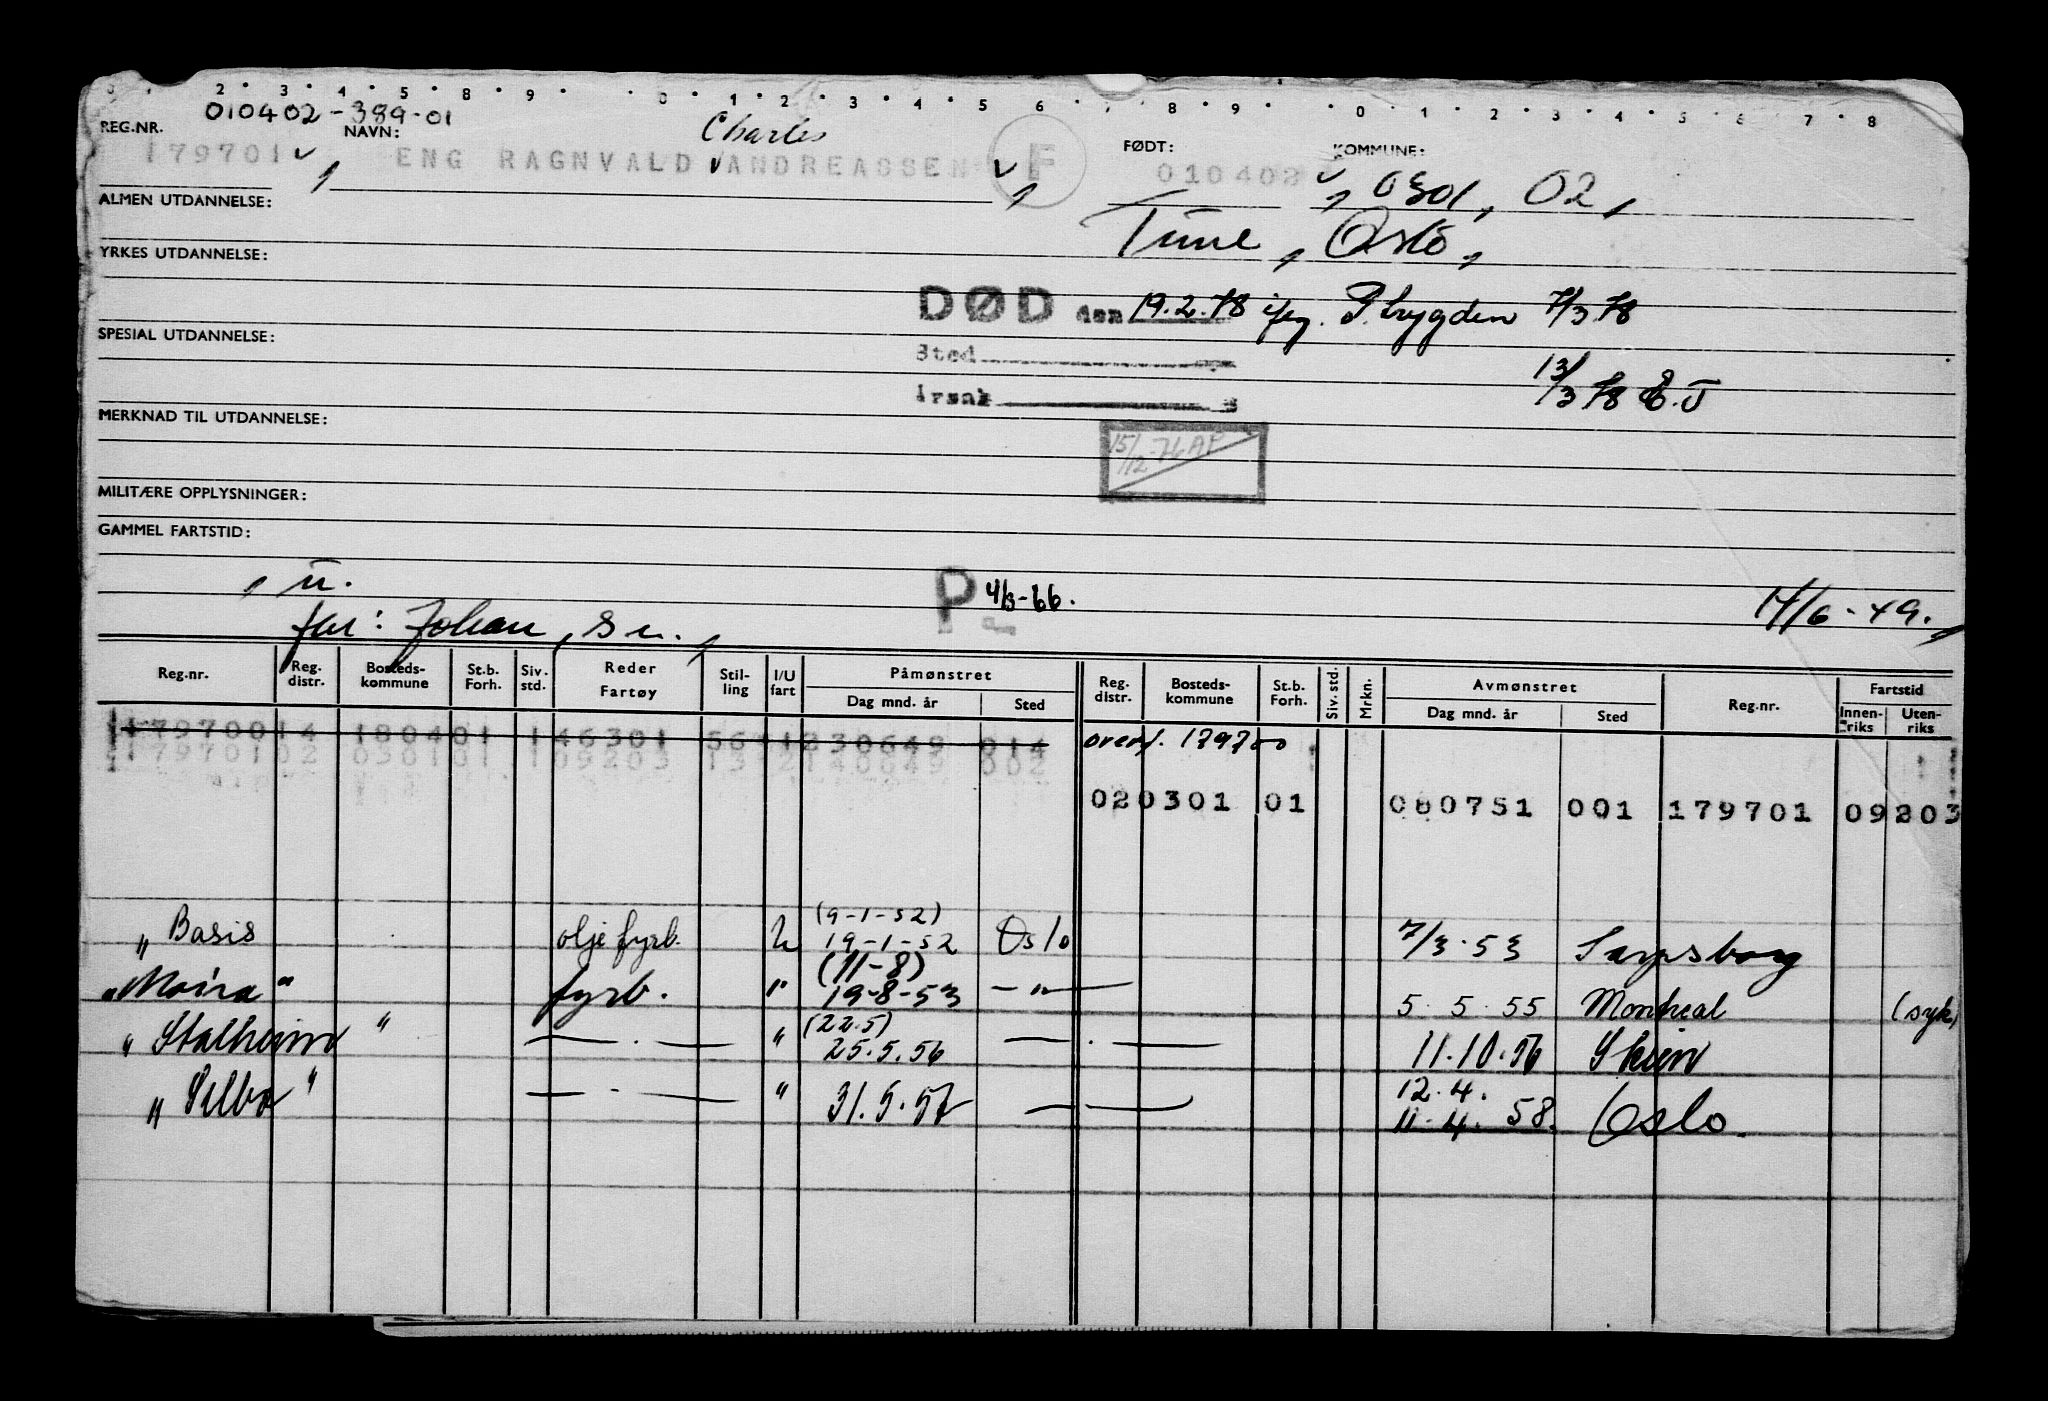 2 · 3 · 4 · 5 · 8 · 9 · 0 · 1 · 2 · 3 · 4 · 5 6 · 7 · 8 · 9 · 0 · 1 · 2 · 3 · 4 · 5 · 6 · 7 · 8
010402-389-01
REG.NR. NAVN: Charles FØDT: KOMMUNE:
179701 ENG RAGNVALD ANDREASSEN F 010402 0301, 02,
ALMEN UTDANNELSE:
Tune, Oslo,
YRKES UTDANNELSE:
DØD den 19.2.78 ifg. P.trygden 7/3 78
SPESIAL UTDANNELSE: Sted
13/3 78 E.J
Årsak
MERKNAD TIL UTDANNELSE:
15/12-76 AP
MILITÆRE OPPLYSNINGER:
GAMMEL FARTSTID:
, u. P 4/3-66. 14/6-49.,
far: Johan, sn.,
Reg.nr. Reg. distr. Bosteds-kommune St.b. Forh. Siv. std. Reder Fartøy Stil-ling I/U fart Påmønstret Reg. distr. Bosteds-kommune St.b. Forh. Siv. std. Mrkn. Avmønstret Reg.nr. Fartstid
Dag mnd. år Sted Dag mnd. år Sted Innen-riks Uten-riks
17970014 180401 146301 56 1 230649 014 overf. 179700
17970102 030101 109203 13 2 140649 002
020301 01 080751 001 179701 09203
(9-1-52)
" Basis olje fyrb. U 19-1-52 Oslo 7/3.53 Sarpsborg
(11-8)
"Moira" fyrb. " 19-8-53 —"— 5. 5. 55 Montreal (syk)
(22.5)
"Stalheim" — . — " 25.5.56 — . — 11.10.56 Skien
12.4.
"Silba" — - — " 31.5.57 — - — 11.4. 58. Oslo.